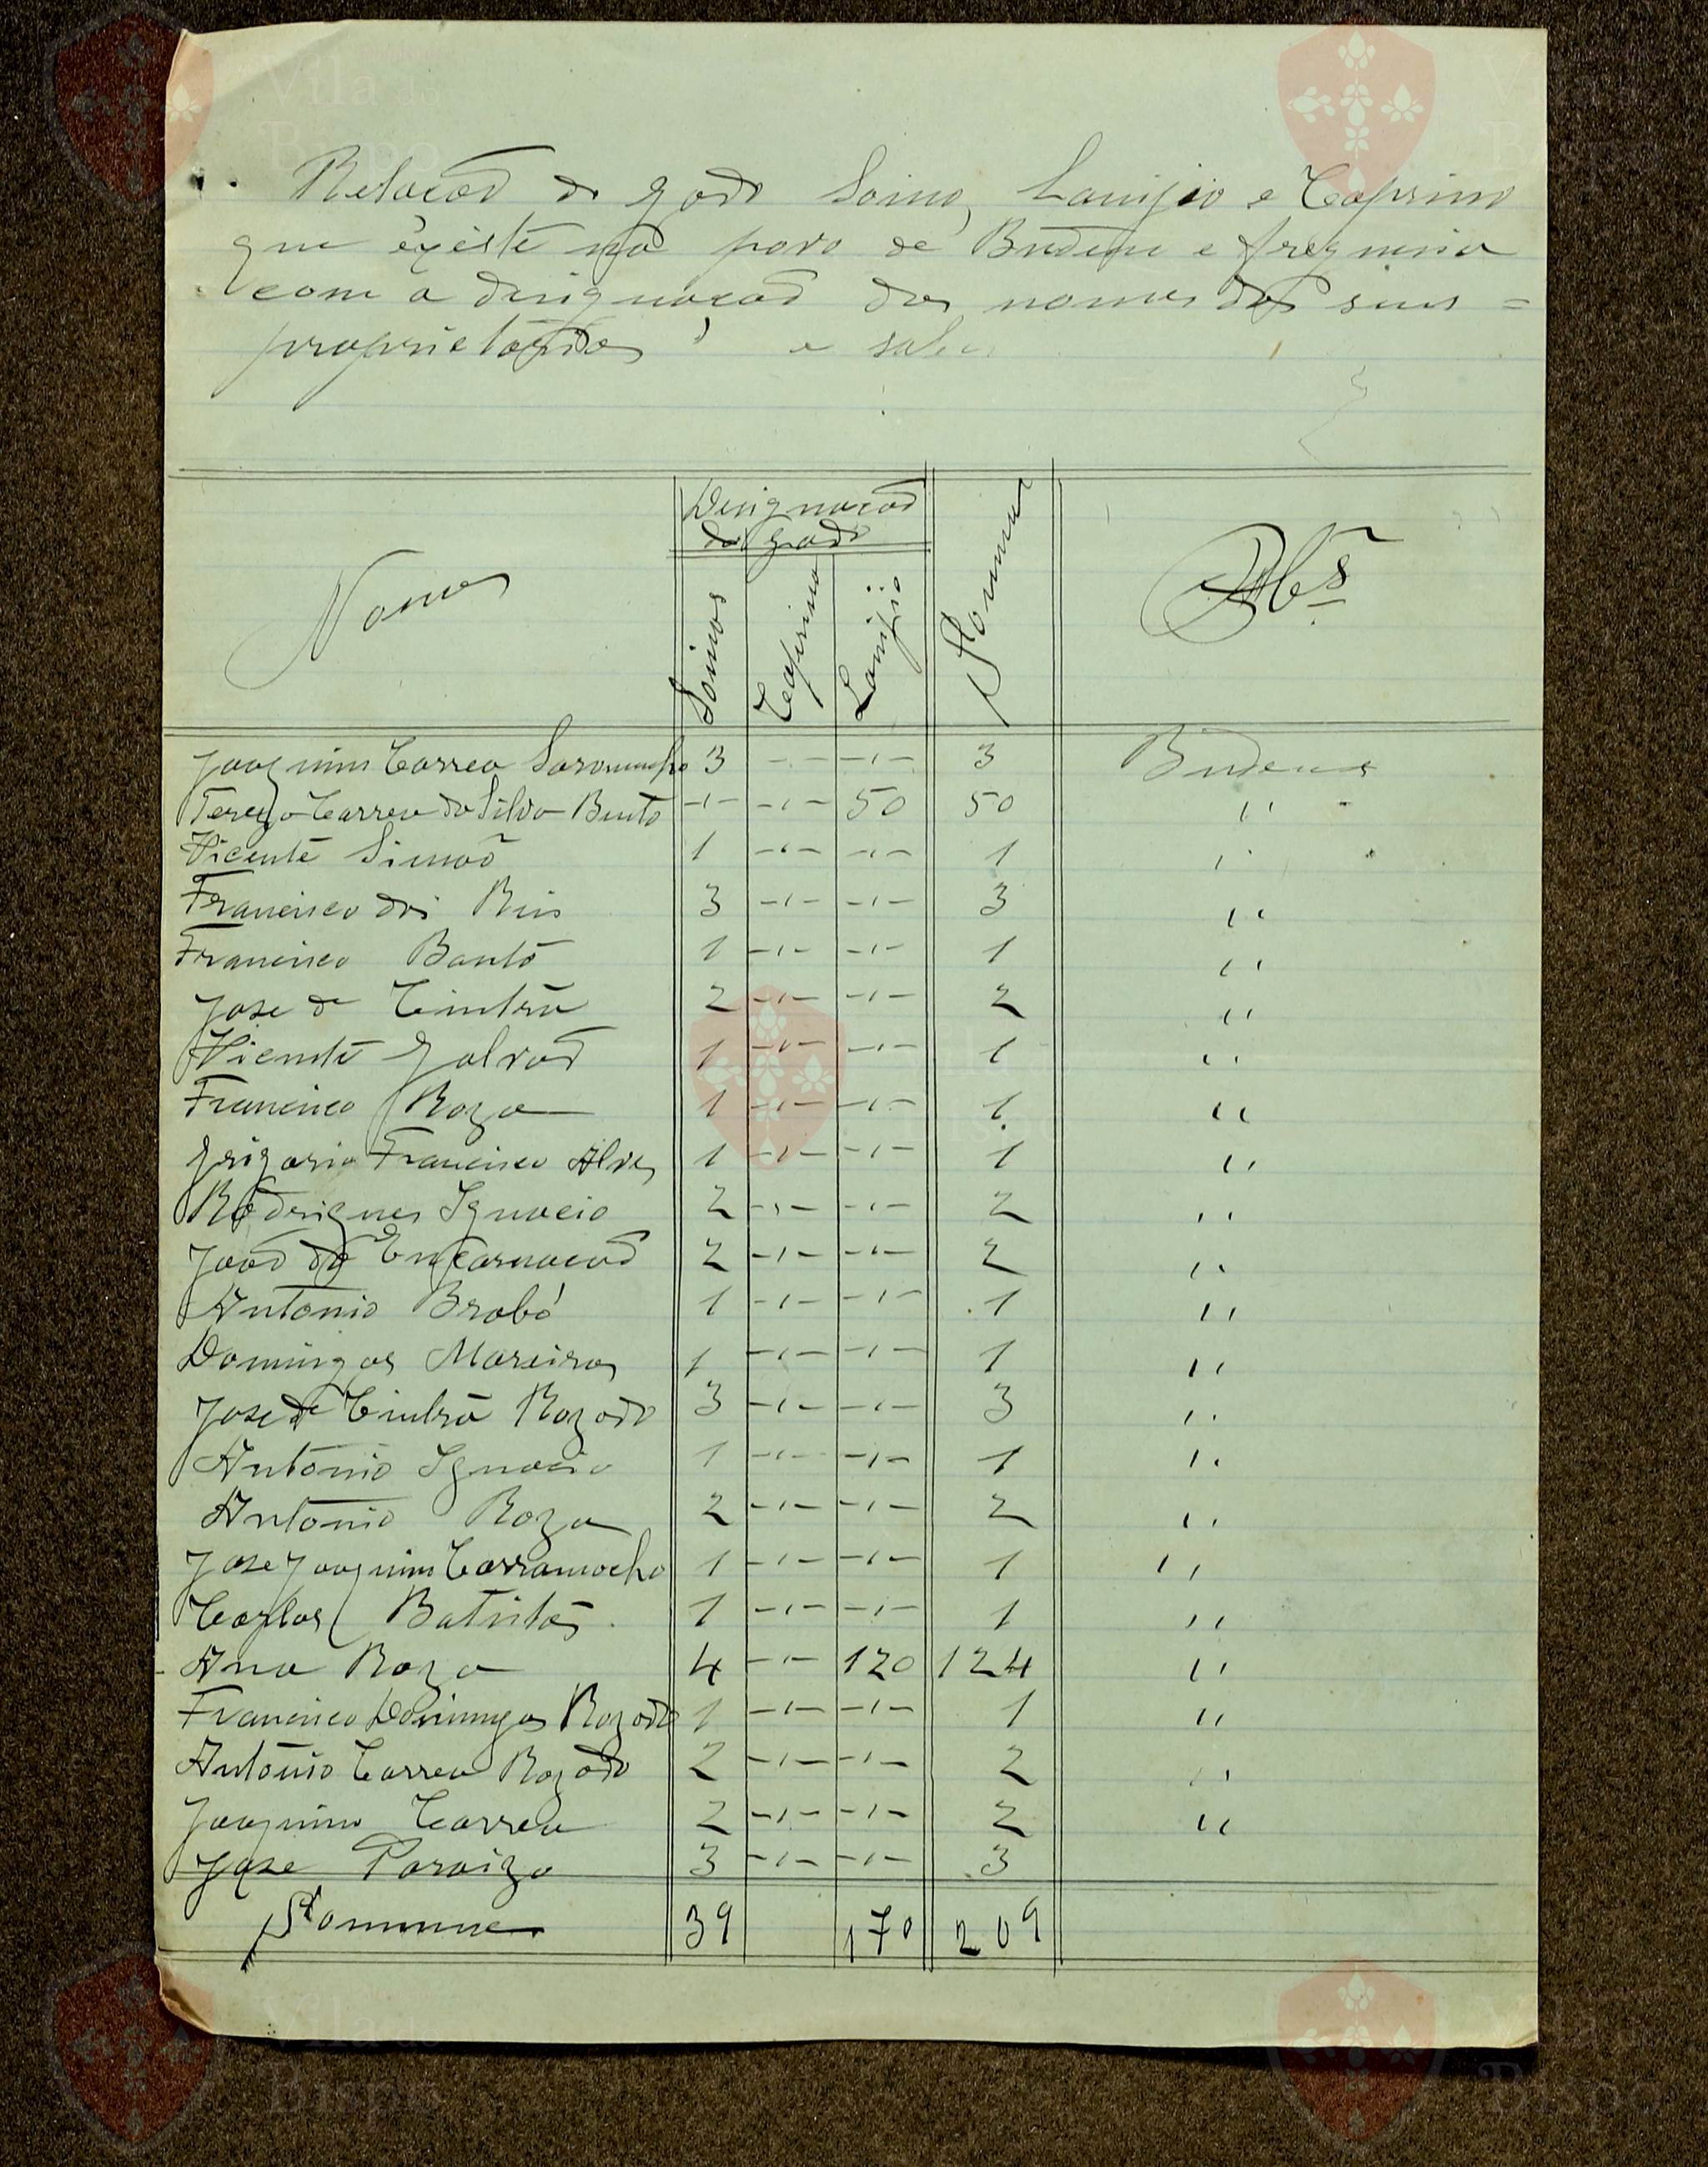 Relação do gado Soino, Lanijio e Caprino
que éxiste no povo de Budens e freguesia
com a designação dos nomes dos seus =
proprietários a saber
Nomes
Designação
do gado
Soinos
Caprino
Lanijio
Somma
Obs
Joaquim Correa 3 -- -,- 3 Budens
Tereza Correa da Silva Bento -,- -,- 50 50 ,,
Vicente Simão 1 -,- -,- 1 ,,
Francisco dos Reis 3 -,- -,- 3 ,,
Francisco Bento 1 -,- -,- 1 ,,
Jose de Cintra 2 -,- -,- 2 ,,
Vicente Galvão 1 -,- -,- 1 ,,
Francisco Roza 1 -,- -,- 1 ,,
Grigorio Francisco Alves 1 -,- -,- 1 ,,
Rodrigues Ignacio 2 -,- -,- 2 ,,
João da Encarnação 2 -,- -,- 2 ,,
Antonio Brabó 1 -,- -,- 1 ,,
Domingos Moreira 1 -,- -,- 1 ,,
Jose de Cintra Rozado 3 -,- -,- 3 ,,
Antonio Ignacio 1 -,- -,- 1 ,,
Antonio Roza 2 -,- -,- 2 ,,
Jose Joaquim Carramocho 1 -,- -,- 1 ,,
Carlos Batista 1 -,- -,- 1 ,,
Ana Roza 4 -,- 120 124 ,,
Francisco Domingos Rozado 1 -,- -,- 1 ,,
Antonio Correa Rozado 2 -,- -,- 2 ,,
Joaquim Correa 2 -,- -,- 2 ,,
Joze Paraizo 3 -,- -,- 3
Somma 39 170 209
Vila do
Bispo